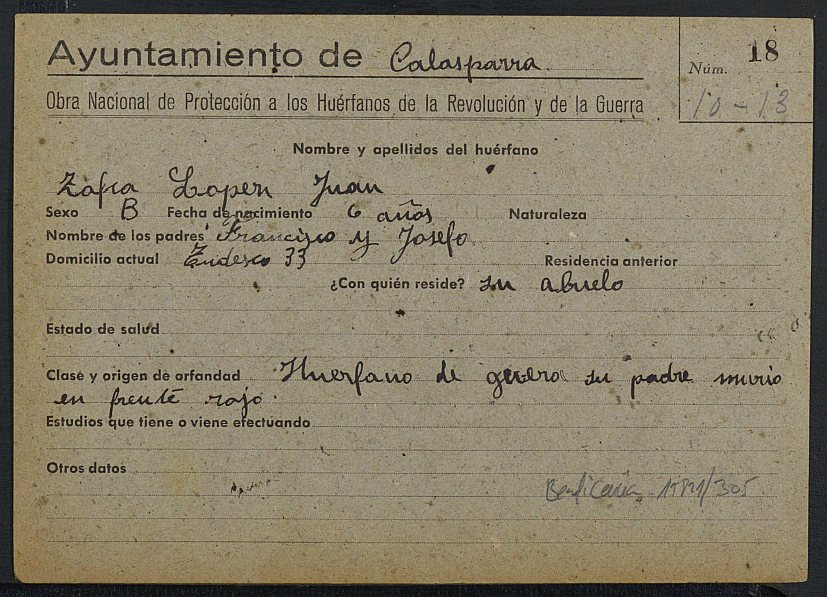 Ayuntamiento de Calasparra
Núm. 18
10-13
Obra Nacional de Protección a los Huérfanos de la Revolución y de la Guerra
Nombre y apellidos del huérfano
Zafra Lopen Juan
Sexo B Fecha de nacimiento 6 años Naturaleza
Nombre de los padres Francisco y Josefa
Domicilio actual 33 Residencia anterior
¿Con quién reside? su abuelo
Estado de salud
Clase y origen de orfandad Huerfano de guerra su padre murio
en frente rojo.
Estudios que tiene o viene efectuando
Otros datos
/305